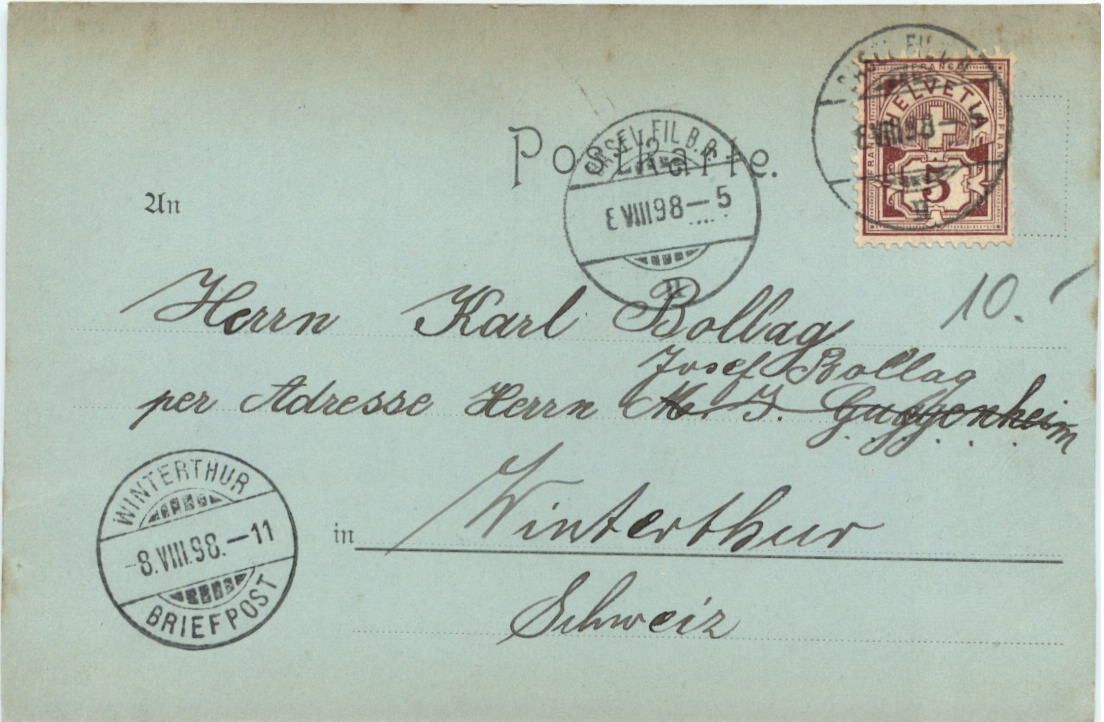 Postkarte.
BASEL FIL.B.B.
8 VIII 98 – 5
FRANCO
HELVETIA
FRANCO FRANCO
5
BASEL FIL.B.B.
8 VIII 98 –
An
10.
Herrn Karl Bollag
Josef Bollag
per Adresse Herrn M. J. Guggenheim
WINTERTHUR
8.VIII.98.–11
BRIEFPOST
in Winterthur
Schweiz